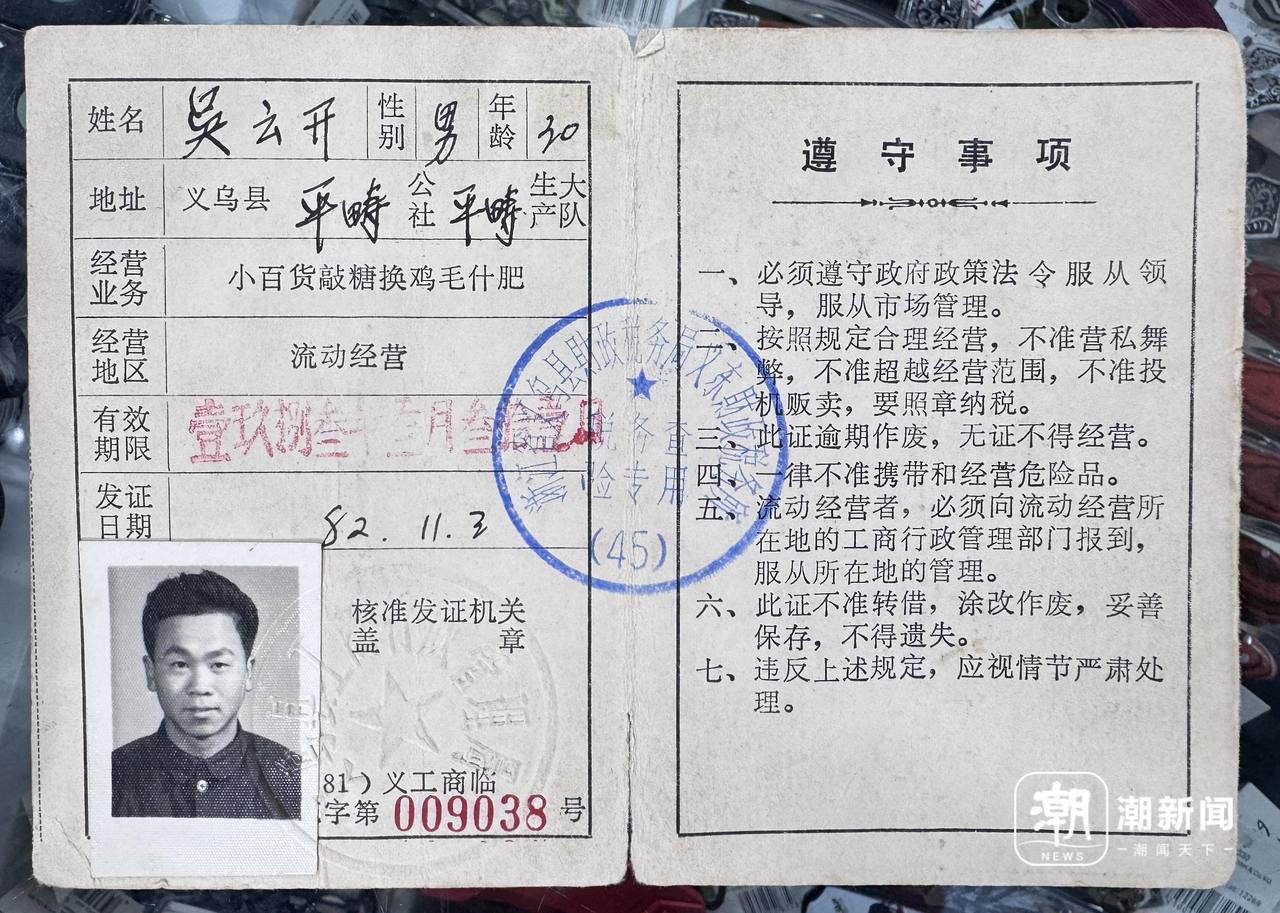 姓名 吴云开 性别 男 年龄 30
地址 义乌县 平畴 公社 平畴 生产大队
经营业务 小百货敲糖换鸡毛什肥
经营地区 流动经营
有效期限 壹玖捌叁年叁月叁拾壹日
发证日期 82.11.3
核准发证机关
盖 章
81)义工商临
字第 009038 号
税务查
验专用
(45)
遵守事项
一、必须遵守政府政策法令服从领
导，服从市场管理。
二、按照规定合理经营，不准营私舞
弊，不准超越经营范围，不准投
机贩卖，要照章纳税。
三、此证逾期作废，无证不得经营。
四、一律不准携带和经营危险品。
五、流动经营者，必须向流动经营所
在地的工商行政管理部门报到，
服从所在地的管理。
六、此证不准转借，涂改作废，妥善
保存，不得遗失。
七、违反上述规定，应视情节严肃处
理。
潮
NEWS
潮新闻
潮闻天下